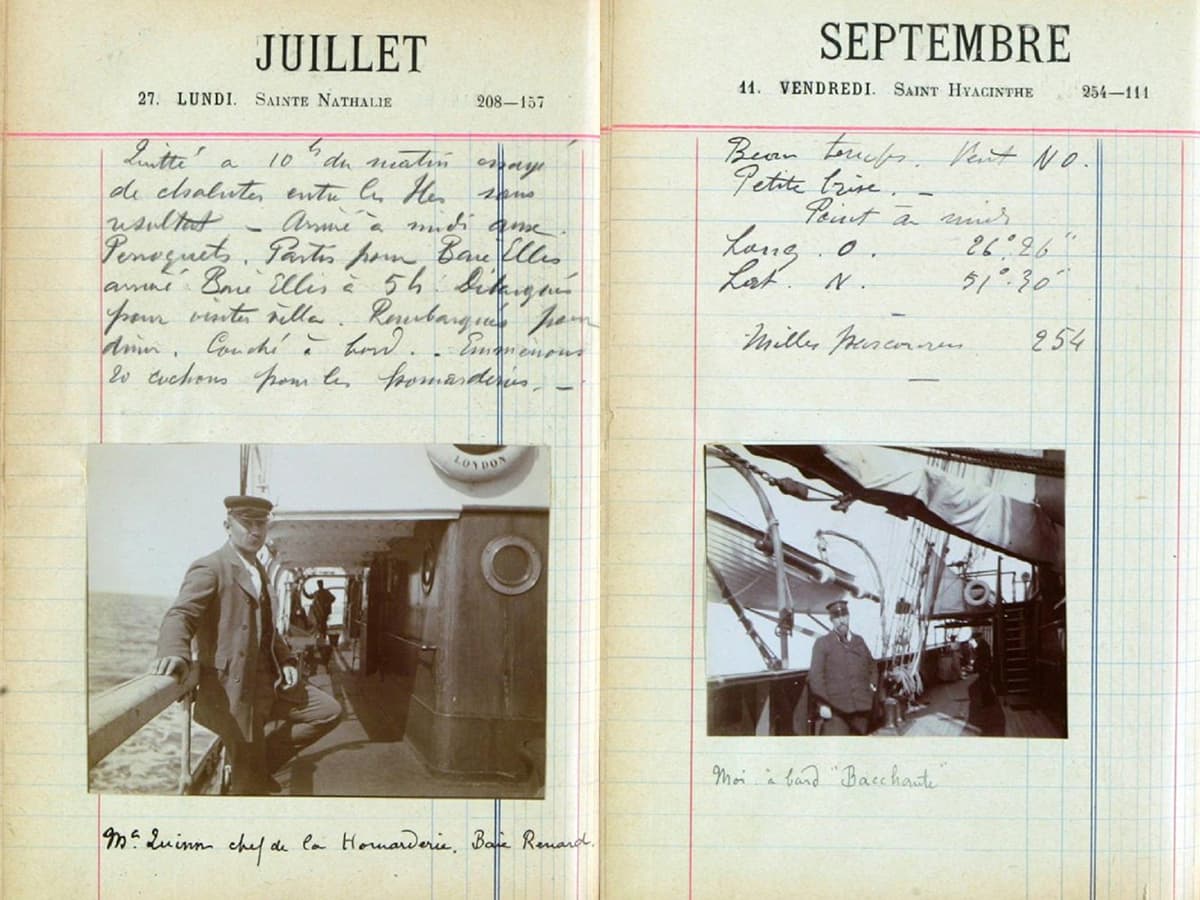 JUILLET
27. LUNDI. SAINTE NATHALIE 208—157
Quitté à 10h du matin essayé
de chaluter entre les Iles sans
resultat - Arrivé à midi aux
Perroquets. Partis pour Baie Ellis
arrivé Baie Ellis à 5h. Débarqués
pour visiter villa. Rembarqués pour
diner. Couché à bord. . Emmenons
20 cochons pour les homarderies. —
LONDON
Mc Quinn chef de la Homarderie. Baie Renard.
SEPTEMBRE
11. VENDREDI. SAINT HYACINTHE 254—111
Beau temps. Vent NO.
Petite brise. —
Point à midi
Long. O. 26° 26"
Lat. N. 51° 30"
Milles parcourus 254
Moi à bord "Bacchante"